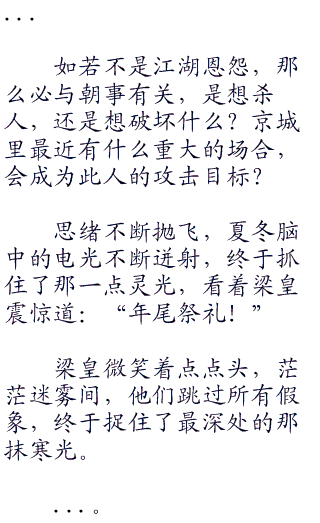 ...
如若不是江湖恩怨，那
么必与朝事有关，是想杀
人，还是想破坏什么？京城
里最近有什么重大的场合，
会成为此人的攻击目标？
思绪不断抛飞，夏冬脑
中的电光不断迸射，终于抓
住了那一点灵光，看着梁皇
震惊道：“年尾祭礼！”
梁皇微笑着点点头，茫
茫迷雾间，他们跳过所有假
象，终于捉住了最深处的那
抹寒光。
...。